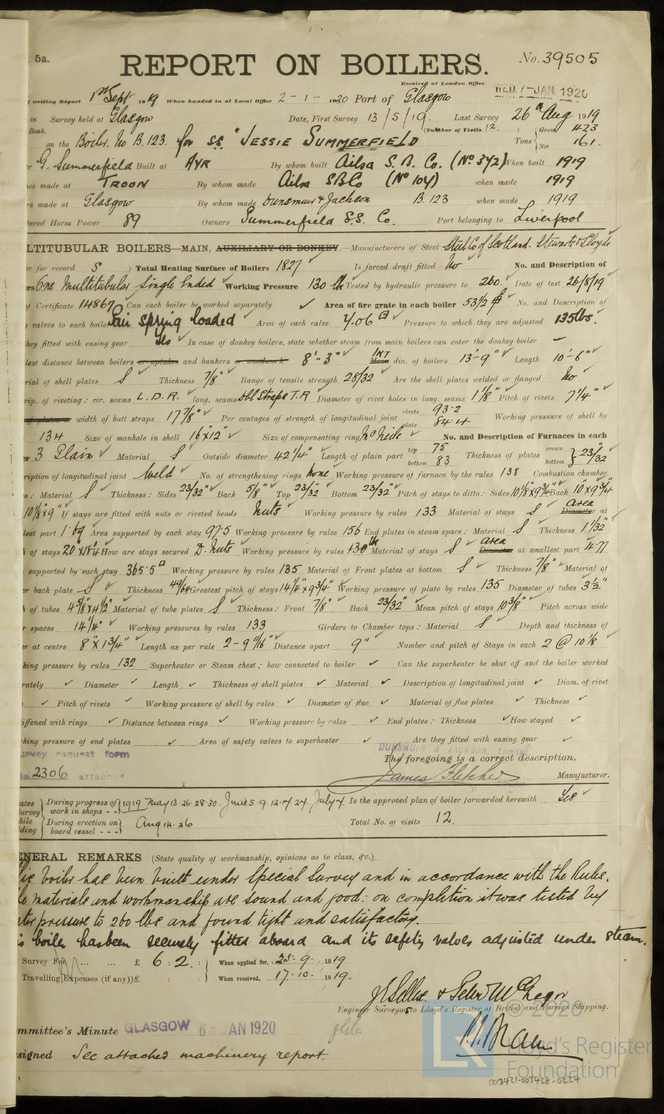 5a.
REPORT ON BOILERS.
No. 39505
Received at London Office
WED. 7-JAN 1920
writing Report 1st Sept 1919 When handed in at Local Office 2-1-1920 Port of Glasgow
in Survey held at Glasgow Date, First Survey 13/5/19. Last Survey 26th Aug 1919
Book. (Number of Visits 12.) Gross 423
on the Boiler No B.123. for ss "JESSIE SUMMERFIELD" Tons Net 161.
G. Summerfield Built at AYR By whom built Ailsa S.B. Co. (No 372) When built 1919
nes made at TROON By whom made Ailsa SBCo (No 104) when made 1919
rs made at Glasgow By whom made Dunsmuir & Jackson B 123 when made 1919
tered Horse Power 89 Owners Summerfield S.S. Co. Port belonging to Liverpool
LTITUBULAR BOILERS—MAIN, AUXILIARY OR DONKEY.—Manufacturers of Steel Steel Co of Scotland. Stewarts & Lloyds
r for record S Total Heating Surface of Boilers 1827 Is forced draft fitted No No. and Description of
One Multitubular Single Ended Working Pressure 130 lb Tested by hydraulic pressure to 260. Date of test 26/8/19
of Certificate 14867 Can each boiler be worked separately Area of fire grate in each boiler 53½ No. and Description of
valves to each boiler Pair spring loaded Area of each valve 7.06 Pressure to which they are adjusted 135 lbs.
hey fitted with easing gear Yes In case of donkey boilers, state whether steam from main boilers can enter the donkey boiler —
lest distance between boilers or uptakes and bunkers or woodwork 8'-3" INT Mean dia. of boilers 13'-9" Length 10'-6"
rial of shell plates S Thickness 7/8" Range of tensile strength 28/32 Are the shell plates welded or flanged No
rip. of riveting: cir. seams L.D.R. long. seams dbl Straps T.R Diameter of rivet holes in long. seams 1 1/8" Pitch of rivets 7 1/4"
width of butt straps 17 7/8" Per centages of strength of longitudinal joint rivets 93.2 plate 84.4 Working pressure of shell by
134 Size of manhole in shell 16"x12" Size of compensating ring McNeile No. and Description of Furnaces in each
3 Plain Material S Outside diameter 42 1/4" Length of plain part top 75" bottom 83 Thickness of plates crown bottom 23/32"
ription of longitudinal joint Weld No. of strengthening rings none Working pressure of furnace by the rules 138 Combustion chamber
s: Material S Thickness: Sides 23/32" Back 5/8" Top 23/32 Bottom 23/32" Pitch of stays to ditto: Sides 10 1/8"x9 3/4" Back 10"x9 3/4"
10 1/8"x9" If stays are fitted with nuts or riveted heads Nuts Working pressure by rules 133 Material of stays S area Diameter at
lest part 1.69 Area supported by each stay 97.5 Working pressure by rules 156 End plates in steam space: Material S Thickness 1 1/32"
of stays 20"x18 1/4 How are stays secured D. Nuts Working pressure by rules 130 Material of stays S area Diameter at smallest part 4.77
supported by each stay 365.5 Working pressure by rules 135 Material of Front plates at bottom S Thickness 7/8" Material of
er back plate S Thickness 49/64" Greatest pitch of stays 14 1/4"x9 3/4" Working pressure of plate by rules 135 Diameter of tubes 3 1/2"
of tubes 4 3/4"x4 1/2" Material of tube plates S Thickness: Front 7/8" Back 23/32" Mean pitch of stays 10 3/8" Pitch across wide
r spaces 14 1/4" Working pressures by rules 133 Girders to Chamber tops: Material S Depth and thickness of
er at centre 8"x1 3/4" Length as per rule 2-9 7/16" Distance apart 9" Number and pitch of Stays in each 2 @ 10 1/8
king pressure by rules 132 Superheater or Steam chest; how connected to boiler Can the superheater be shut off and the boiler worked
rately Diameter Length Thickness of shell plates Material Description of longitudinal joint Diam. of rivet
Pitch of rivets Working pressure of shell by rules Diameter of flue Material of flue plates Thickness
iffened with rings Distance between rings Working pressure by rules End plates: Thickness How stayed
rking pressure of end plates Area of safety valves to superheater Are they fitted with easing gear
DUNSMUIR & JACKSON, Limited
urvey request form The foregoing is a correct description,
2306 attached James Fletcher Manufacturer.
ates During progress of work in shops - - 1919 May 13. 26. 28. 30 June 5. 9. 12. 17. 24 July 7 Is the approved plan of boiler forwarded herewith Yes
During erection on board vessel - - - Aug 14. 26 Total No. of visits 12.
NERAL REMARKS (State quality of workmanship, opinions as to class, &c.)
his boiler has been built under Special Survey and in accordance with the Rules.
he materials and workmanship are sound and good: on completion it was tested by
ater pressure to 260 lbs and found tight and satisfactory.
is boiler has been securely fitted aboard and its safety valves adjusted under steam.
Survey Fee ... ... £ 6 : 2 : When applied for, 25.9.1919
Travelling Expenses (if any) £ : : When received, 17.10.1919.
Engineer Surveyors to Lloyd's Register of British and Foreign Shipping.
ommittee's Minute GLASGOW 6-JAN 1920
signed See attached machinery report.
© 2020
LR
Lloyd's Register
Foundation
003421-003428-0224